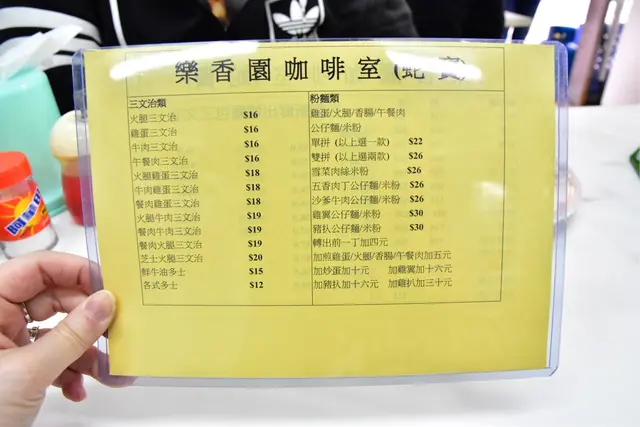 樂香園咖啡室(蛇竇)
三文治類
火腿三文治 $16
雞蛋三文治 $16
牛肉三文治 $16
午餐肉三文治 $16
火腿雞蛋三文治 $18
牛肉雞蛋三文治 $18
餐肉雞蛋三文治 $18
火腿牛肉三文治 $19
餐肉牛肉三文治 $19
餐肉火腿三文治 $19
芝士火腿三文治 $20
鮮牛油多士 $15
各式多士 $12
粉麵類
雞蛋/火腿/香腸/午餐肉
公仔麵/米粉
單拼 (以上選一款) $22
雙拼 (以上選兩款) $26
雪菜肉絲米粉 $26
五香肉丁公仔麵/米粉 $26
沙爹牛肉公仔麵/米粉 $26
雞翼公仔麵/米粉 $30
豬扒公仔麵/米粉 $30
轉出前一丁加四元
加煎雞蛋/火腿/香腸/午餐肉加五元
加炒蛋加十元 加雞翼加十六元
加豬扒加十六元 加雞扒加三十元